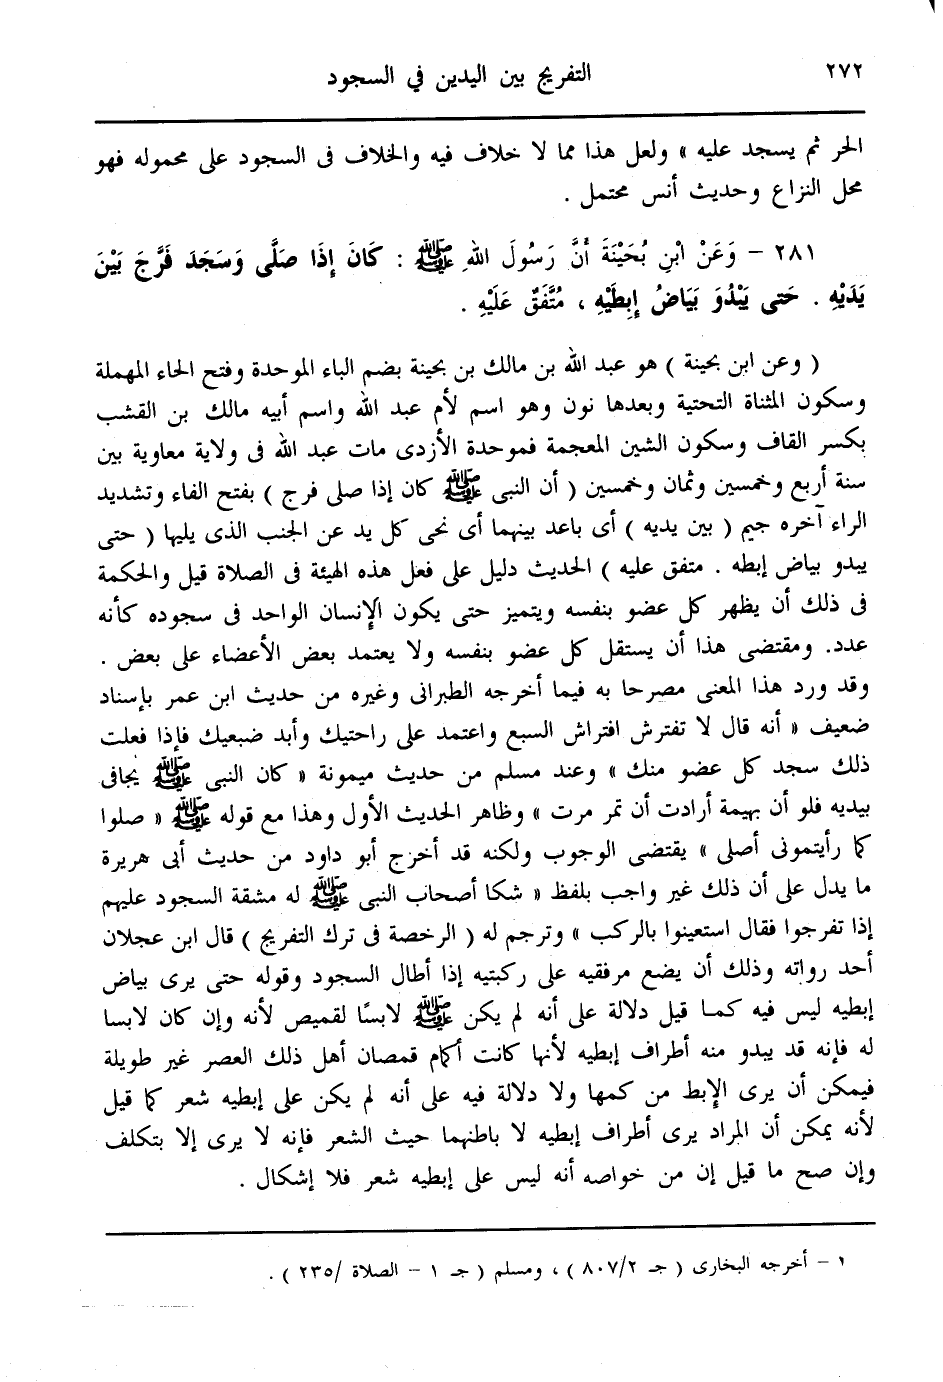 ٢٧٢
التفريج بين اليدين في السجود
الحر ثم يسجد عليه » ولعل هذا مما لا خلاف فيه والخلاف فى السجود على محموله فهو
محل النزاع وحديث أنس محتمل .
٢٨١ – وَعَنْ ابْنِ بُحَيْنَةَ أَنَّ رَسُولَ اللهِ ﷺ : كَانَ إِذَا صَلَّى وَسَجَدَ فَرَّجَ بَيْنَ
يَدَيْهِ . حَتى يَبْدُوَ بَيَاضُ إِبطَيْهِ ، مُتَّفَقٌ عَلَيْهِ .
( وعن ابن بحينة ) هو عبد الله بن مالك بن بحينة بضم الباء الموحدة وفتح الحاء المهملة
وسكون المثناة التحتية وبعدها نون وهو اسم لأم عبد الله واسم أبيه مالك بن القشب
بكسر القاف وسكون الشين المعجمة فموحدة الأزدى مات عبد الله فى ولاية معاوية بين
سنة أربع وخمسين وثمان وخمسين ( أن النبى ﷺ كان إذا صلى فرج ) بفتح الفاء وتشديد
الراء آخره جيم ( بين يديه ) أى باعد بينهما أى نحى كل يد عن الجنب الذى يليها ( حتى
يبدو بياض إبطه . متفق عليه ) الحديث دليل على فعل هذه الهيئة فى الصلاة قيل والحكمة
فى ذلك أن يظهر كل عضو بنفسه ويتميز حتى يكون الإنسان الواحد فى سجوده كأنه
عدد. ومقتضى هذا أن يستقل كل عضو بنفسه ولا يعتمد بعض الأعضاء على بعض .
وقد ورد هذا المعنى مصرحا به فيما أخرجه الطبرانى وغيره من حديث ابن عمر بإسناد
ضعيف « أنه قال لا تفترش افتراش السبع واعتمد على راحتيك وأبد ضبعيك فإذا فعلت
ذلك سجد كل عضو منك » وعند مسلم من حديث ميمونة « كان النبى ﷺ يجافى
بيديه فلو أن بهيمة أرادت أن تمر مرت » وظاهر الحديث الأول وهذا مع قوله ﷺ « صلوا
كما رأيتمونى أصلى » يقتضى الوجوب ولكنه قد أخرج أبو داود من حديث أبى هريرة
ما يدل على أن ذلك غير واجب بلفظ « شكا أصحاب النبى ﷺ له مشقة السجود عليهم
إذا تفرجوا فقال استعينوا بالركب » وترجم له ( الرخصة فى ترك التفريج ) قال ابن عجلان
أحد رواته وذلك أن يضع مرفقيه على ركبتيه إذا أطال السجود وقوله حتى يرى بياض
إبطيه ليس فيه كما قيل دلالة على أنه لم يكن ﷺ لابسًا لقميص لأنه وإن كان لابسا
له فإنه قد يبدو منه أطراف إبطيه لأنها كانت أكمام قمصان أهل ذلك العصر غير طويلة
فيمكن أن يرى الإبط من كمها ولا دلالة فيه على أنه لم يكن على إبطيه شعر كما قيل
لأنه يمكن أن المراد يرى أطراف إبطيه لا باطنهما حيث الشعر فإنه لا يرى إلا بتكلف
وإن صح ما قيل إن من خواصه أنه ليس على إبطيه شعر فلا إشكال .
١ – أخرجه البخارى ( جـ ٨٠٧/٢ ) ، ومسلم ( جـ ١ – الصلاة /٢٣٥ ) .